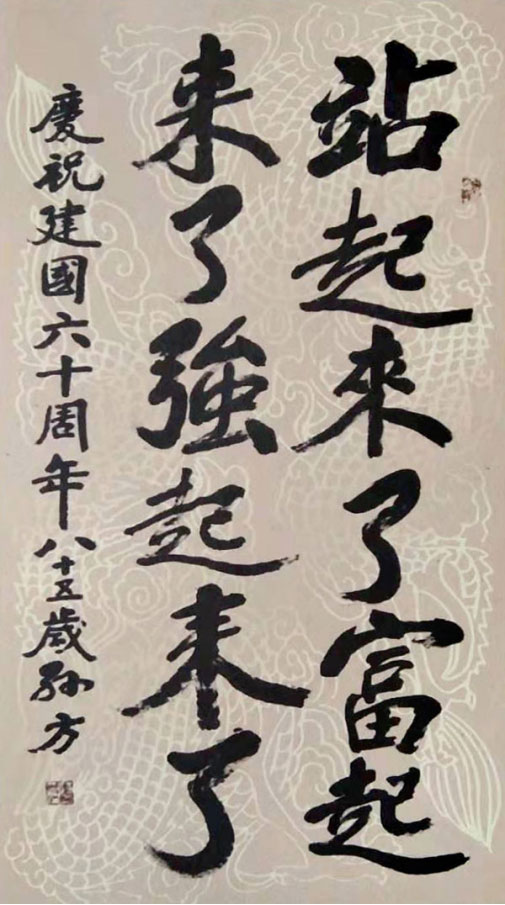 站起來了富起
来了強起来了
慶祝建國六十周年八十五歲孙方